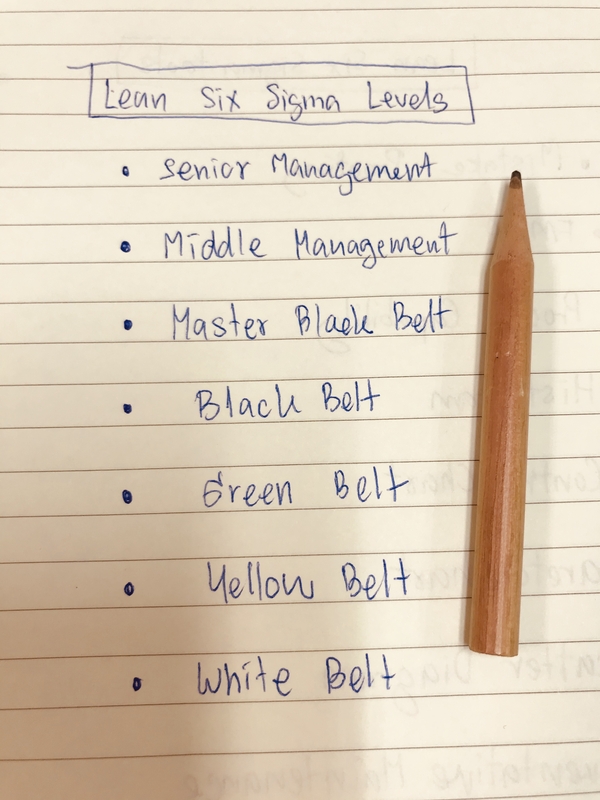 Lean Six Sigma Levels
• Senior Management
• Middle Management
• Master Black Belt
• Black Belt
• Green Belt
• Yellow Belt
• White Belt